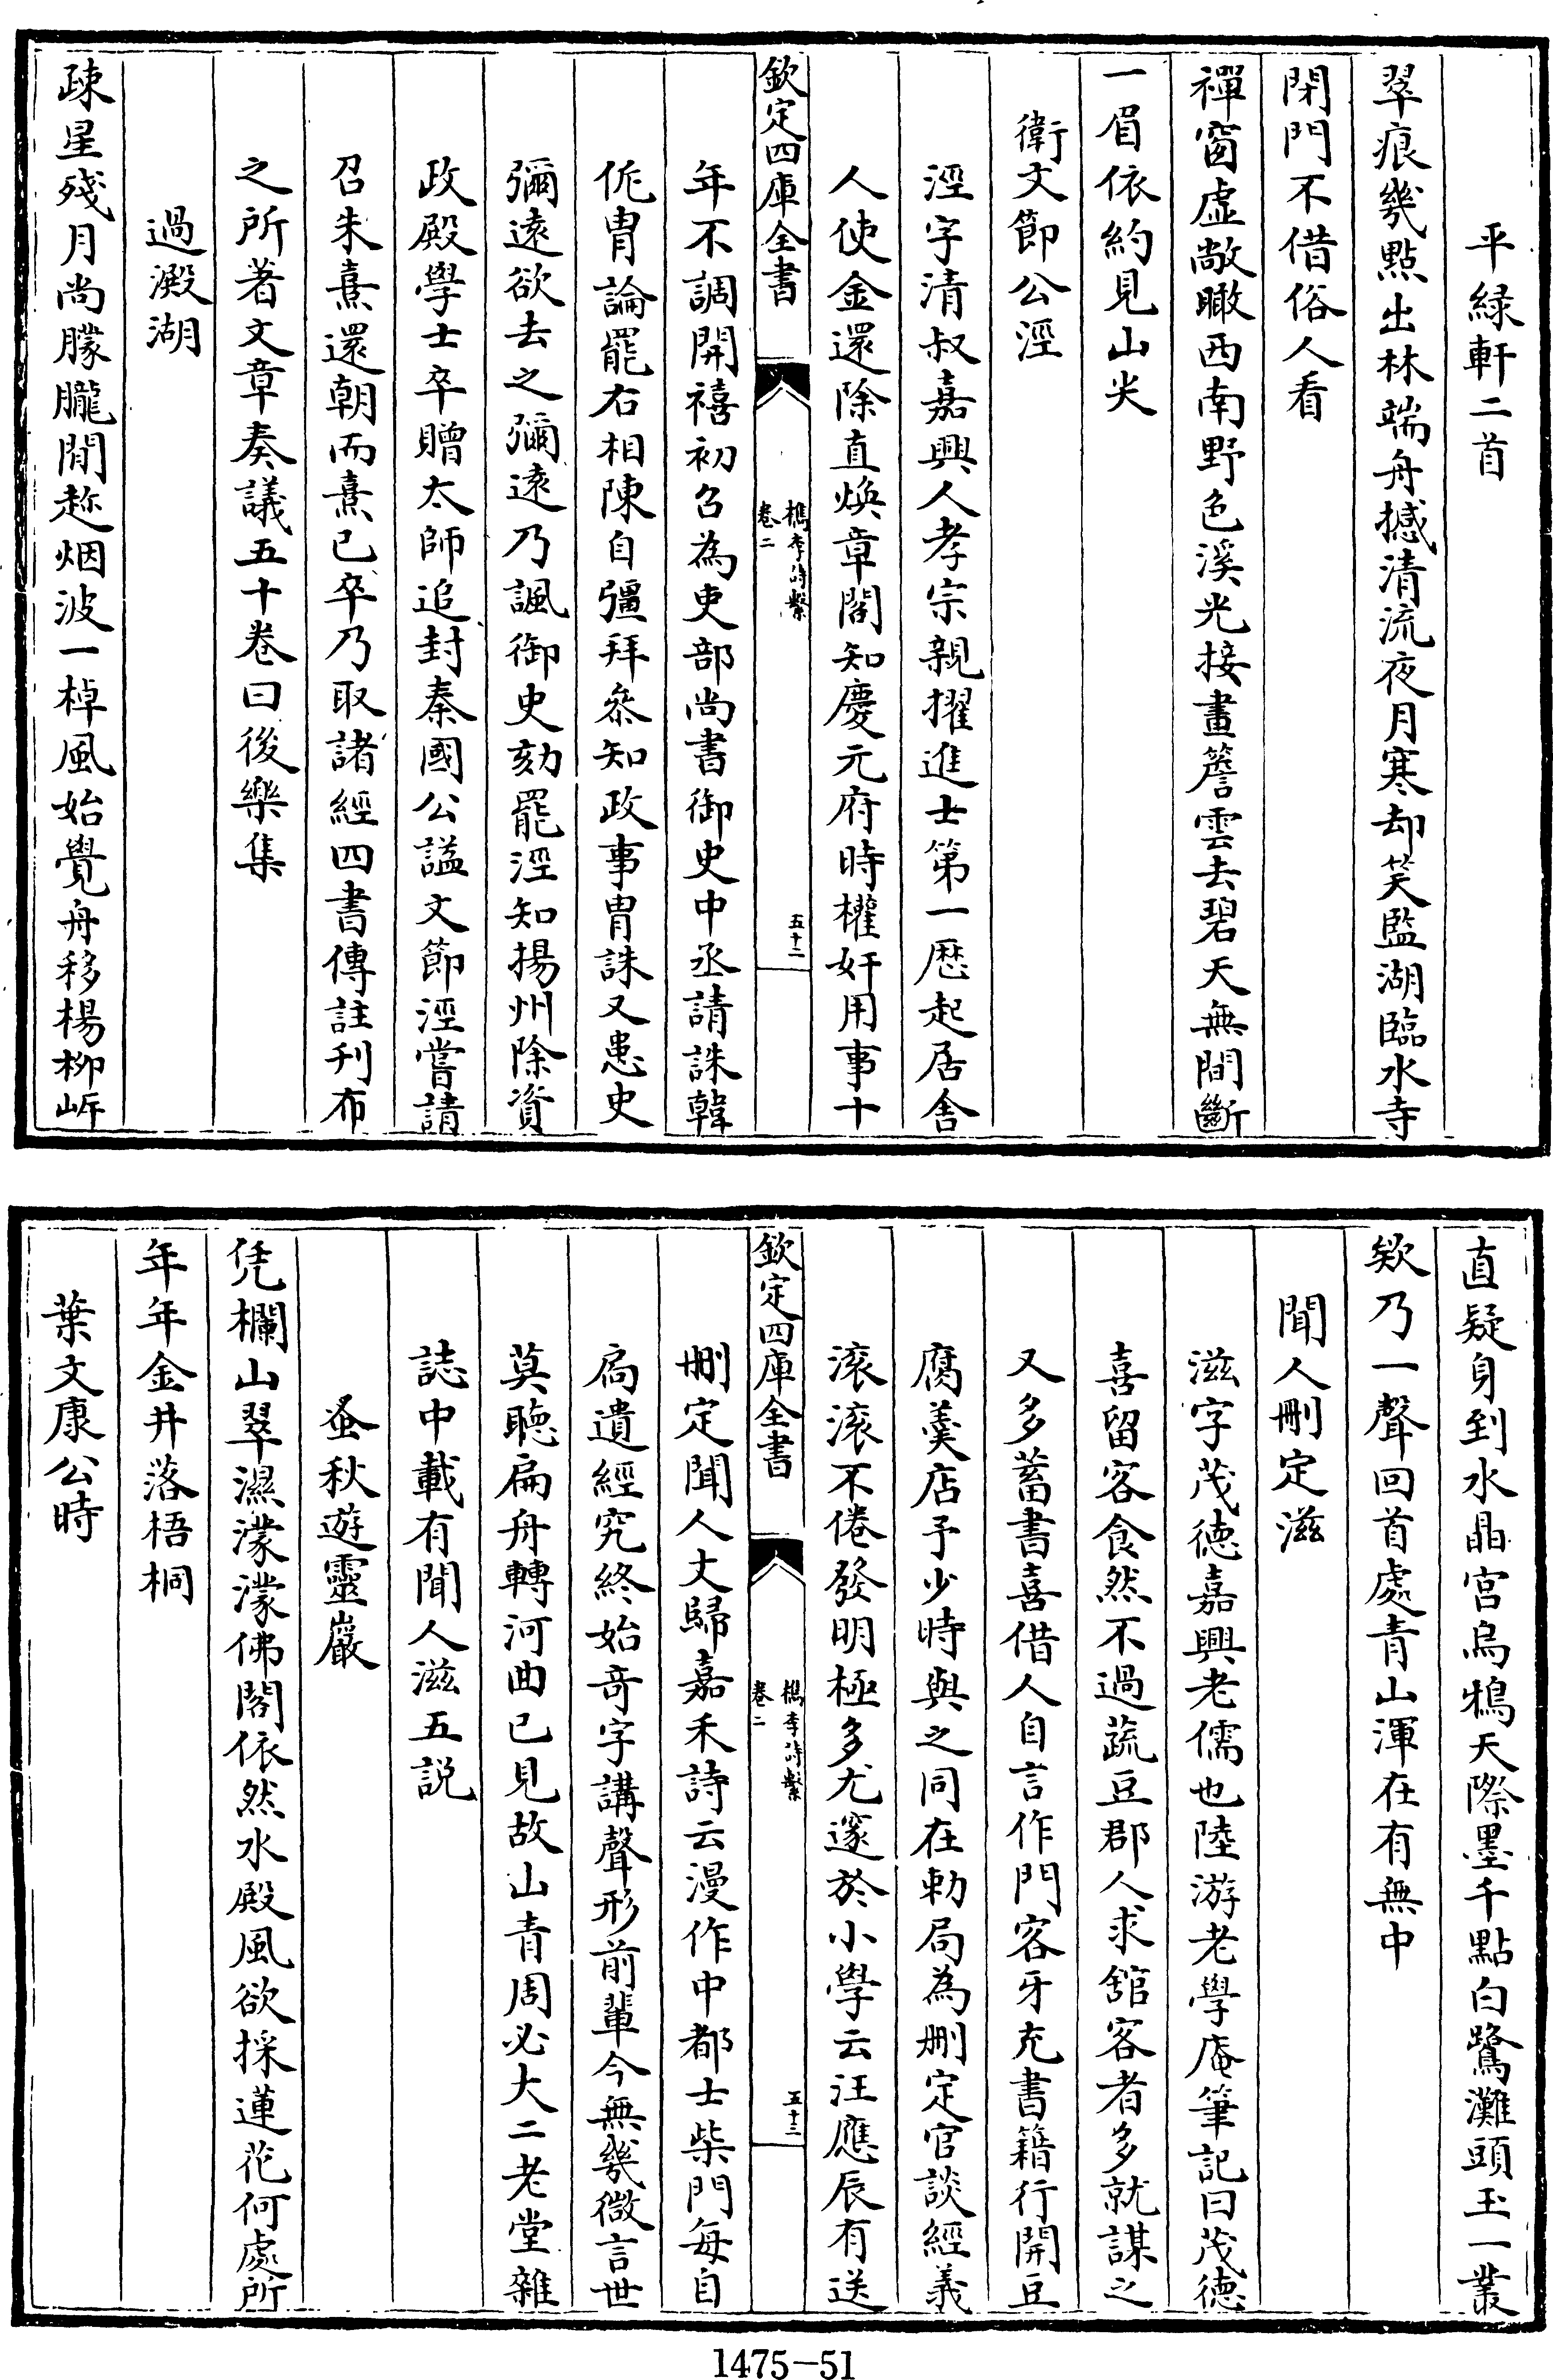 平緑軒二首
翠痕幾點出林端舟撼清流夜月寒却笑監湖臨水寺
閉門不借俗人看
禪窗虛敞瞰西南野色溪光接畫簷雲去碧天無間斷
一眉依約見山尖
衛文節公涇
涇字清叔嘉興人孝宗親擢進士第一歷起居舍
人使金還除直煥章閣知慶元府時權奸用事十
欽定四庫全書
檇李詩繫
卷二
五十二
年不調開禧初召為吏部尚書御史中丞請誅韓
侂冑論罷右相陳自彊拜叅知政事冑誅又患史
彌遠欲去之彌遠乃諷御史劾罷涇知揚州除資
政殿學士卒贈太師追封秦國公謚文節涇嘗請
召朱熹還朝而熹已卒乃取諸經四書傳註刊布
之所著文章奏議五十卷曰後樂集
過澱湖
疎星殘月尚朦朧閒趂烟波一棹風始覺舟移楊柳岍
直疑身到水晶宮烏鴉天際墨千點白鷺灘頭玉一叢
欸乃一聲回首處青山渾在有無中
聞人刪定滋
滋字茂德嘉興老儒也陸游老學庵筆記曰茂德
喜留客食然不過蔬豆郡人求舘客者多就謀之
又多蓄書喜借人自言作門客牙充書籍行開豆
腐羹店予少時與之同在勅局為刪定官談經義
滚滚不倦發明極多尤邃於小學云汪應辰有送
欽定四庫全書
檇李詩繫
卷二
五十三
刪定聞人丈歸嘉禾詩云漫作中都士柴門每自
扃遺經究終始竒字講聲形前輩今無幾微言世
莫聴扁舟轉河曲已見故山青周必大二老堂雜
誌中載有聞人滋五説
蚤秋遊靈巖
凭欄山翠濕濛濛佛閣依然水殿風欲採蓮花何處所
年年金井落梧桐
葉文康公時
1475-51